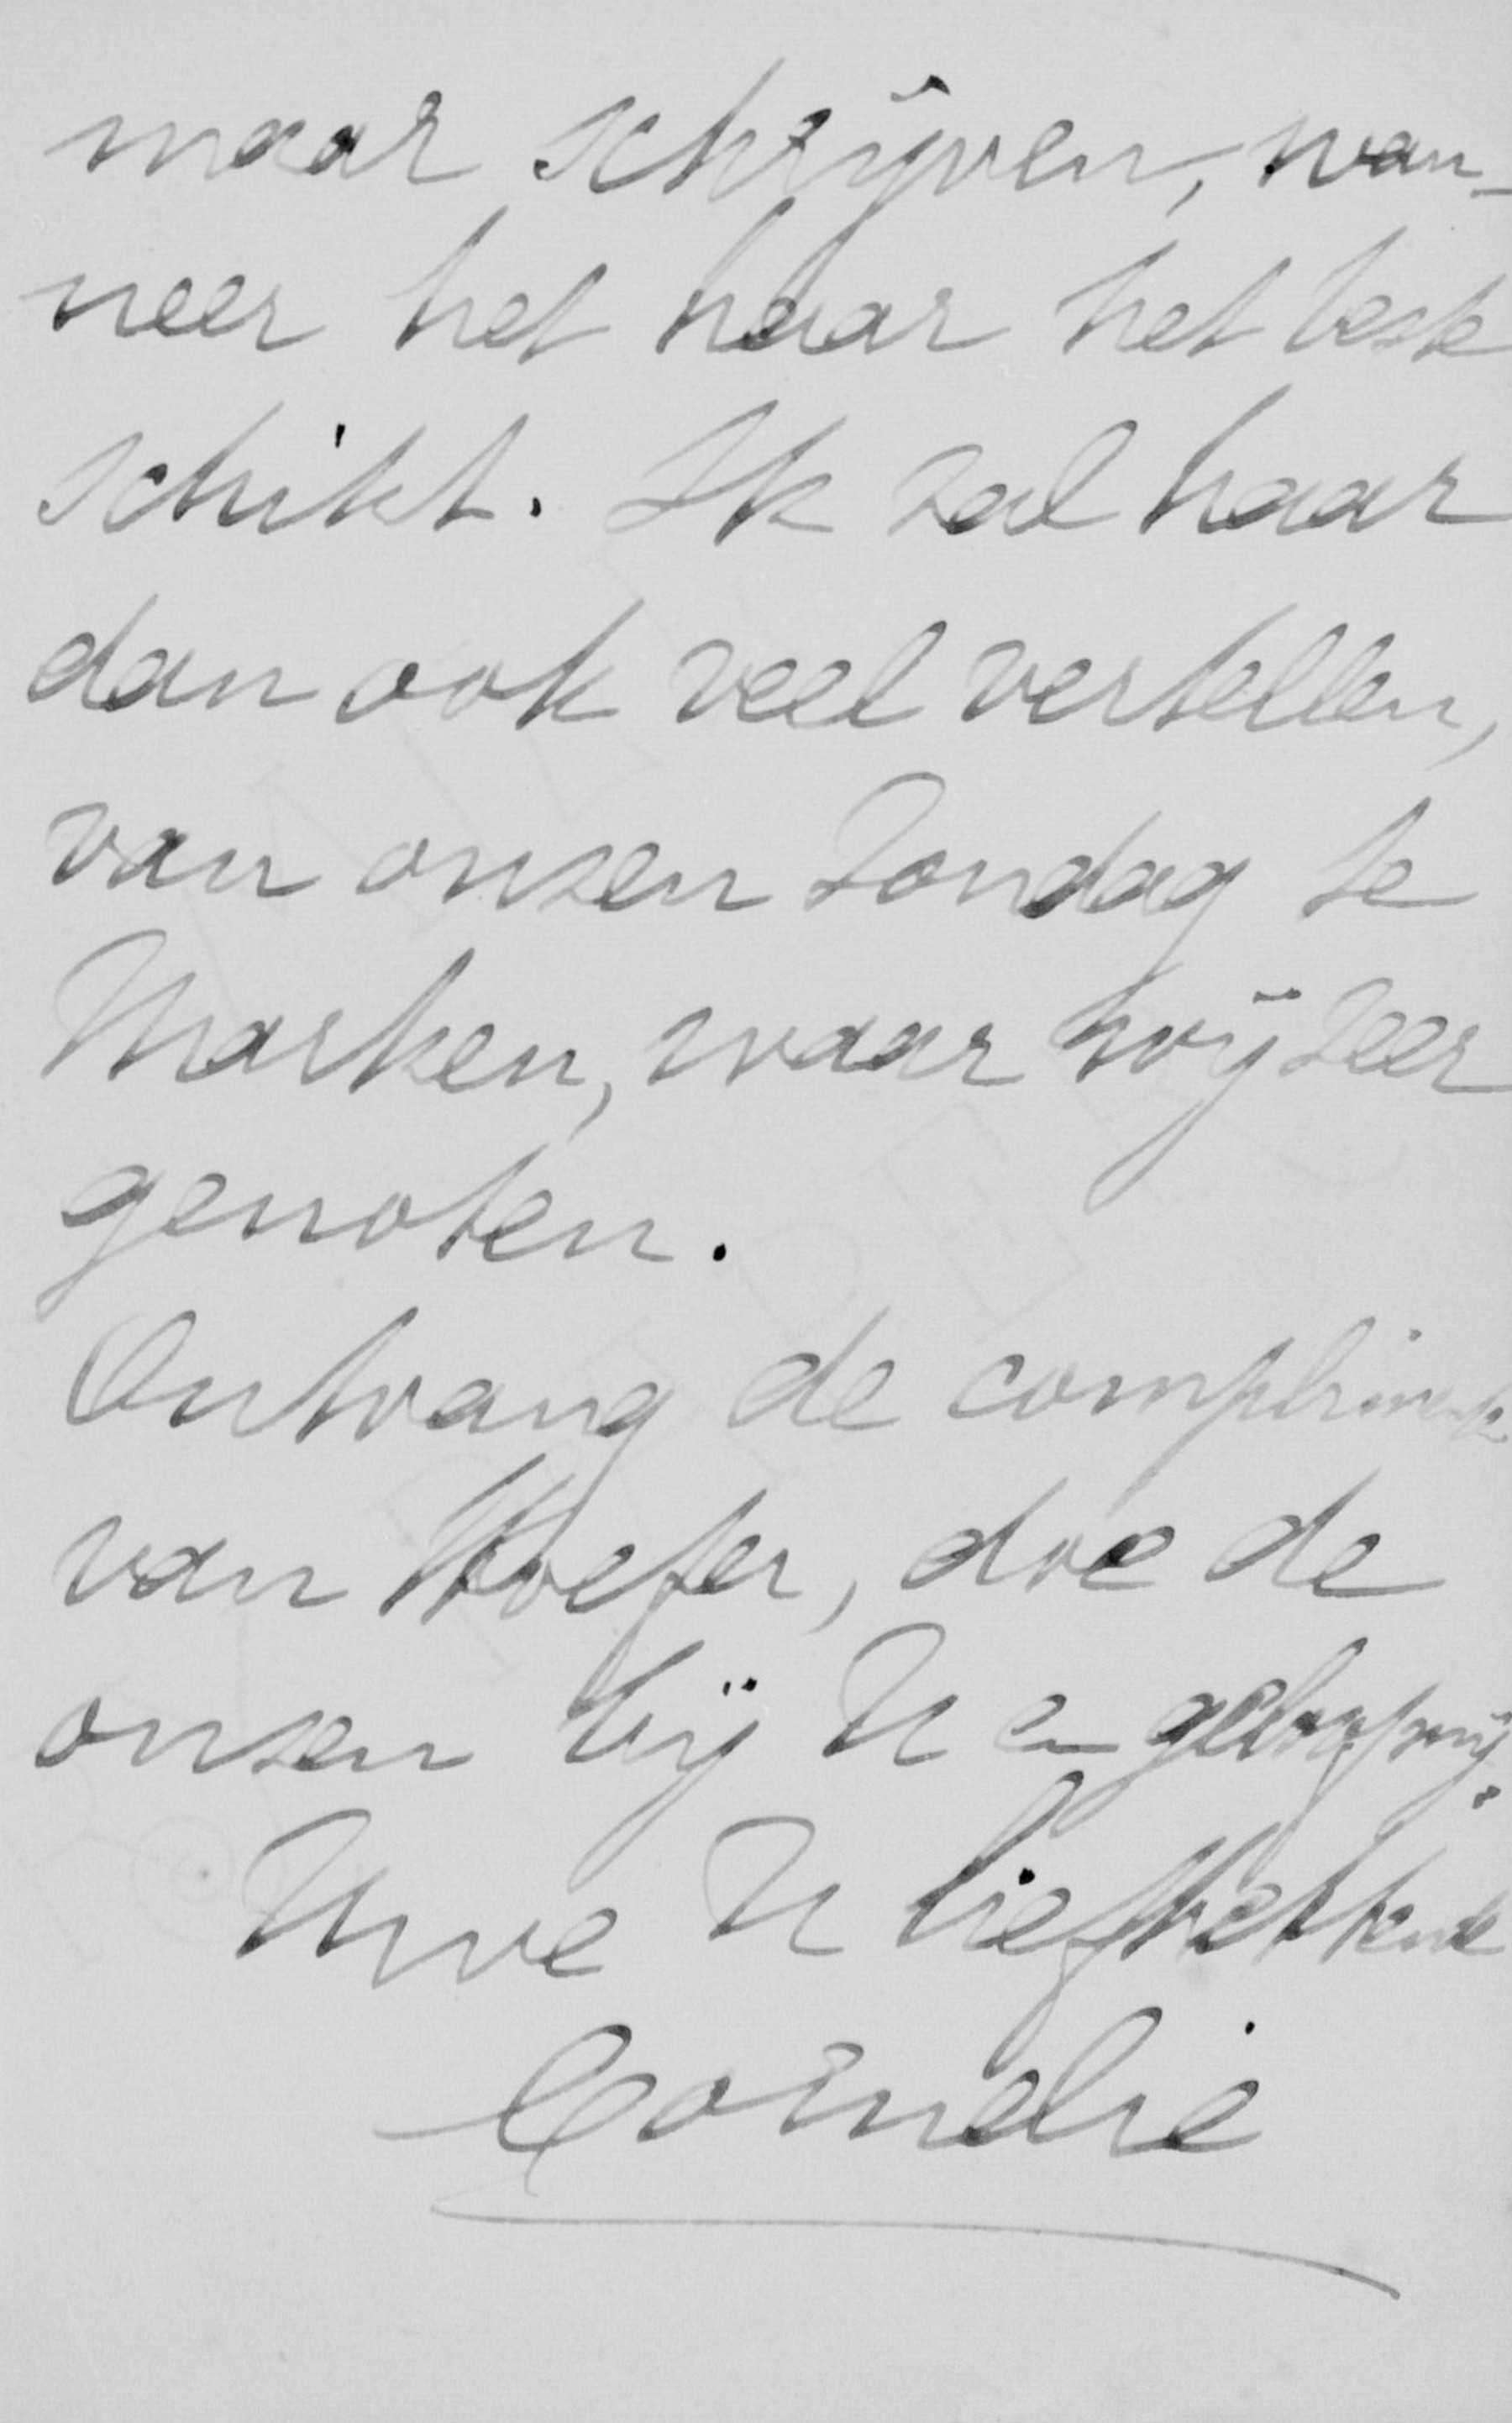 maar schrijven, wan-
neer het haar het beste
schikt. Ik zal haar
dan ook veel vertellen,
van onzen Zondag te
Marken, waar wij zeer
genoten.
Ontvang de complimente
van Hoefer, doe de
onzen bij U en geloof mij.
Uwe U liefhebbende
Cornelie